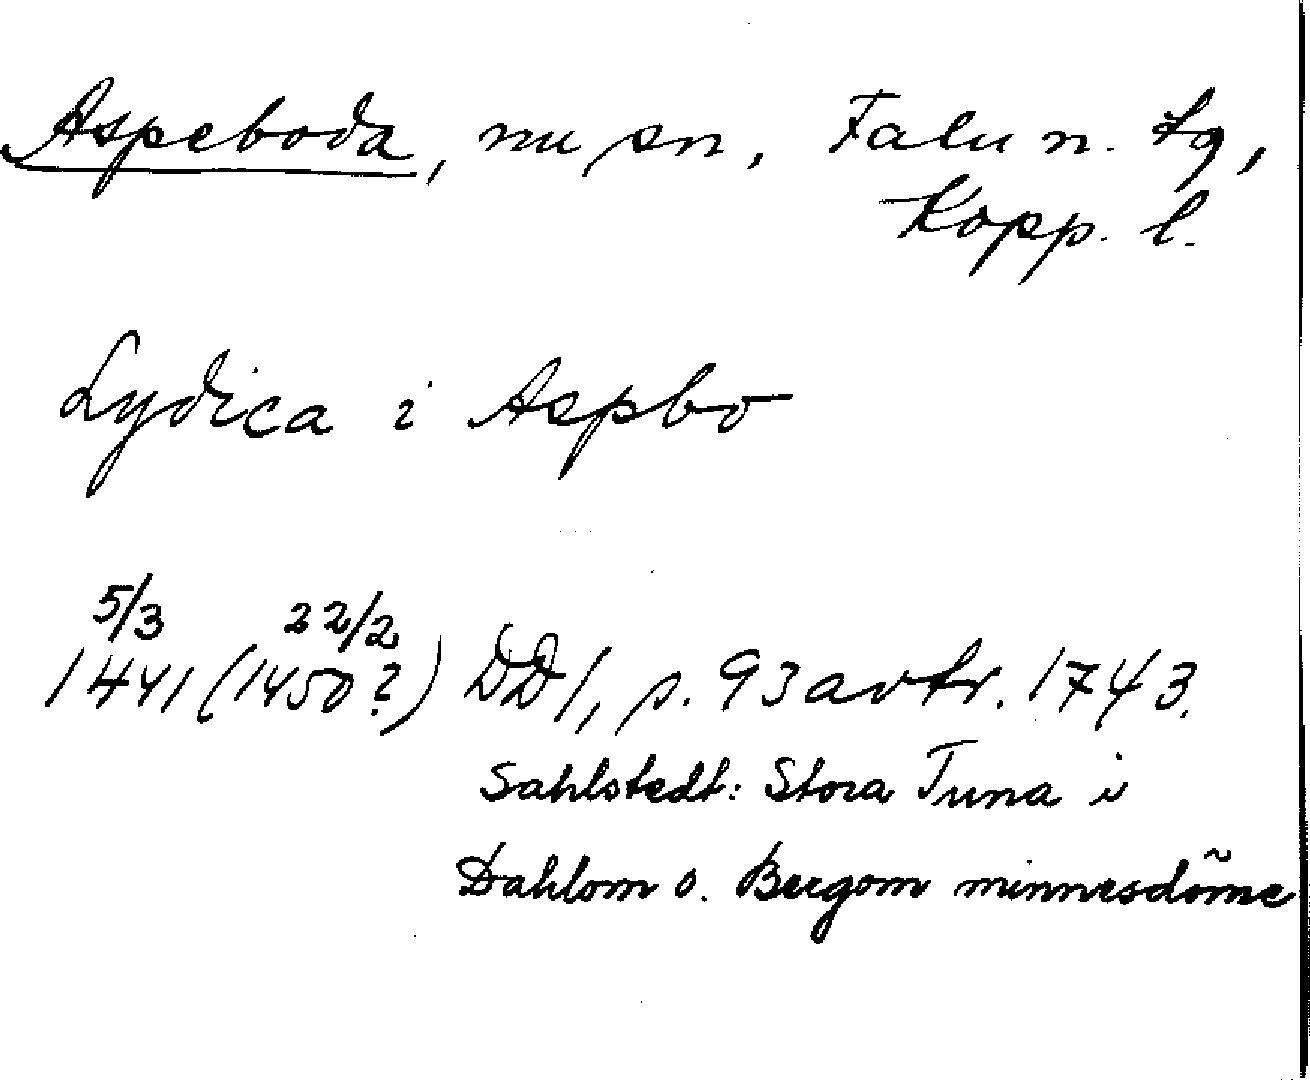 Aspeboda, nu sn, Falu n. tg,
Kopp. l.
Lydica i Aspbo
5/3 22/2
1441 (1450?) DD 1, s. 93 avtr. 1743.
Sahlstedt: Stora Tuna i
Dahlom o. Bergom minnesdöme